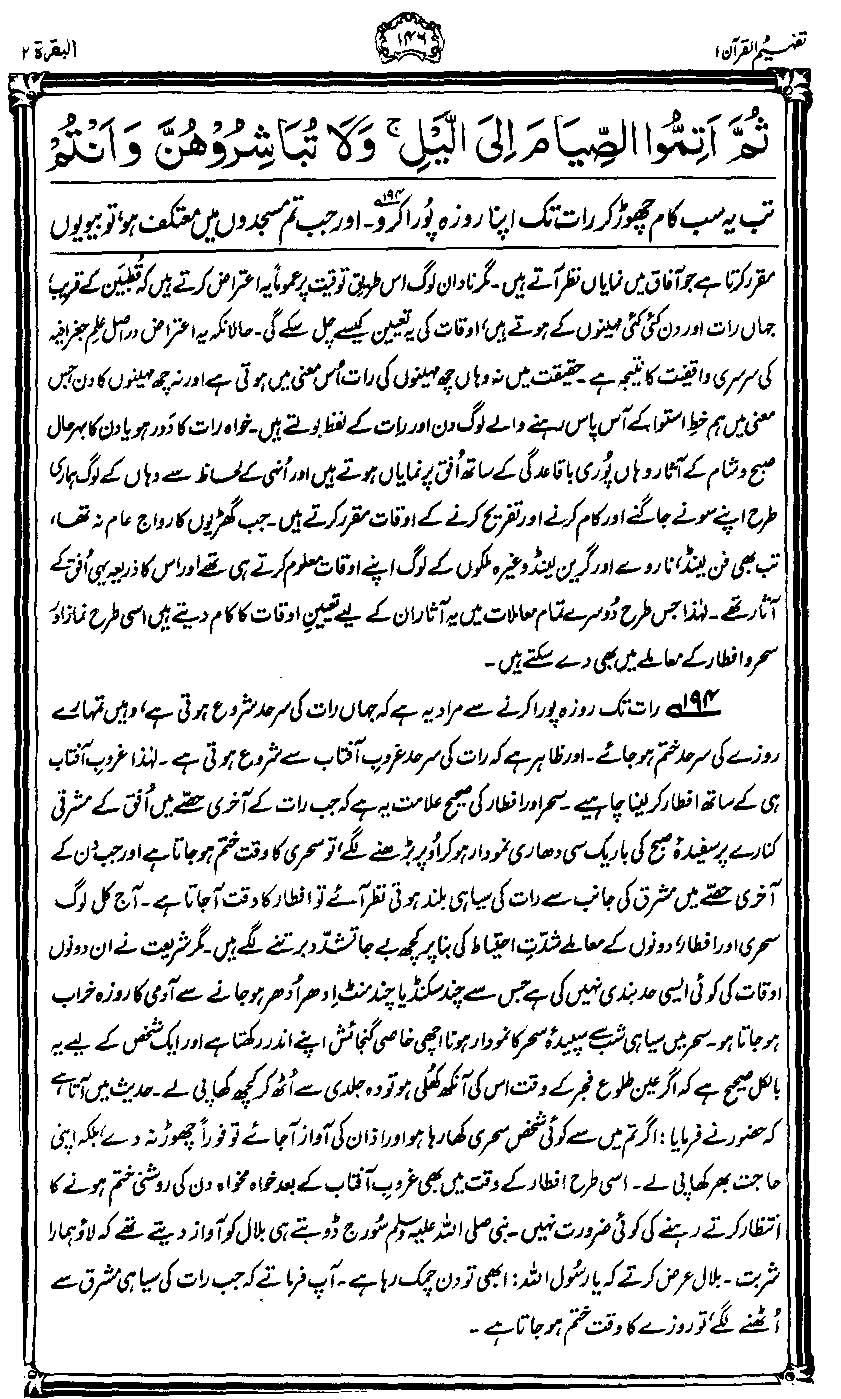 تفہیم القرآن ۱
۱۴۶
البقرة ۲
ثُمَّ اَتِمُّوا الصِّيَامَ اِلَى الَّيْلِ ۚ وَلَا تُبَاشِرُوْهُنَّ وَاَنْتُمْ
تب یہ سب کام چھوڑ کر رات تک اپنا روزہ پُورا کرو۱۹۴۔ اور جب تم مسجدوں میں معتکف ہو، تو بیویوں
مقرر کرتا ہے جو آفاق میں نمایاں نظر آتے ہیں۔ مگر نادان لوگ اس طریقِ توقیت پر عموماً یہ اعتراض کرتے ہیں کہ قُطبَین کے قریب،
جہاں رات اور دن کئی کئی مہینوں کے ہوتے ہیں، اوقات کی یہ تعیین کیسے چل سکے گی۔ حالانکہ یہ اعتراض دراصل علمِ جغرافیہ
کی سرسری واقفیت کا نتیجہ ہے۔ حقیقت میں نہ وہاں چھ مہینوں کی رات اُس معنی میں ہوتی ہے اور نہ چھ مہینوں کا دن جس
معنی میں ہم خطِ استوا کے آس پاس رہنے والے لوگ دن اور رات کے لفظ بولتے ہیں۔ خواہ رات کا دَور ہو یا دن کا بہرحال
صبح و شام کے آثار وہاں پُوری باقاعدگی کے ساتھ اُفق پر نمایاں ہوتے ہیں اور اُنہی کے لحاظ سے وہاں کے لوگ ہماری
طرح اپنے سونے جاگنے اور کام کرنے اور تفریح کرنے کے اوقات مقرر کرتے ہیں۔ جب گھڑیوں کا رواج عام نہ تھا،
تب بھی فن لینڈ، ناروے اور گرین لینڈ وغیرہ ملکوں کے لوگ اپنے اوقات معلوم کرتے ہی تھے اور اس کا ذریعہ یہی اُفق کے
آثار تھے۔ لہٰذا جس طرح دُوسرے تمام معاملات میں یہ آثار ان کے لیے تعیینِ اوقات کا کام دیتے ہیں اسی طرح نماز اور
سحر و افطار کے معاملے میں بھی دے سکتے ہیں۔
۱۹۴ رات تک روزہ پورا کرنے سے مراد یہ ہے کہ جہاں رات کی سرحد شروع ہوتی ہے، وہیں تمہارے
روزے کی سرحد ختم ہو جائے۔ اور ظاہر ہے کہ رات کی سرحد غروبِ آفتاب سے شروع ہوتی ہے۔ لہٰذا غروبِ آفتاب
ہی کے ساتھ افطار کر لینا چاہیے۔ سحر اور افطار کی صحیح علامت یہ ہے کہ جب رات کے آخری حصّے میں اُفق کے مشرقی
کنارے پر سفیدۂ صبح کی باریک سی دھاری نمودار ہو کر اُوپر بڑھنے لگے، تو سحری کا وقت ختم ہو جاتا ہے اور جب دن کے
آخری حصّے میں مشرق کی جانب سے رات کی سیاہی بلند ہوتی نظر آئے تو افطار کا وقت آ جاتا ہے۔ آج کل لوگ
سحری اور افطار، دونوں کے معاملے شدّتِ احتیاط کی بنا پر کچھ بے جا تشدّد برتنے لگے ہیں۔ مگر شریعت نے ان دونوں
اوقات کی کوئی ایسی حد بندی نہیں کی ہے جس سے چند سکنڈ یا چند منٹ اِدھر اُدھر ہو جانے سے آدمی کا روزہ خراب
ہو جاتا ہو۔ سحر میں سیاہی شب سے سپیدۂ سحر کا نمودار ہونا اچھی خاصی گنجائش اپنے اندر رکھتا ہے اور ایک شخص کے لیے یہ
بالکل صحیح ہے کہ اگر عین طلوعِ فجر کے وقت اس کی آنکھ کھُلی ہو تو وہ جلدی سے اُٹھ کر کچھ کھا پی لے۔ حدیث میں آتا ہے
کہ حضور نے فرمایا: اگر تم میں سے کوئی شخص سحری کھا رہا ہو اور اذان کی آواز آ جائے تو فوراً چھوڑ نہ دے، بلکہ اپنی
حاجت بھر کھا پی لے۔ اسی طرح افطار کے وقت میں بھی غروبِ آفتاب کے بعد خواہ مخواہ دن کی روشنی ختم ہونے کا
انتظار کرتے رہنے کی کوئی ضرورت نہیں۔ نبی صلی اللہ علیہ وسلم سُورج ڈوبتے ہی بلال کو آواز دیتے تھے کہ لاؤ ہمارا
شربت۔ بلال عرض کرتے کہ یا رسُول اللہ! ابھی تو دن چمک رہا ہے۔ آپ فرماتے کہ جب رات کی سیاہی مشرق سے
اُٹھنے لگے، تو روزے کا وقت ختم ہو جاتا ہے۔